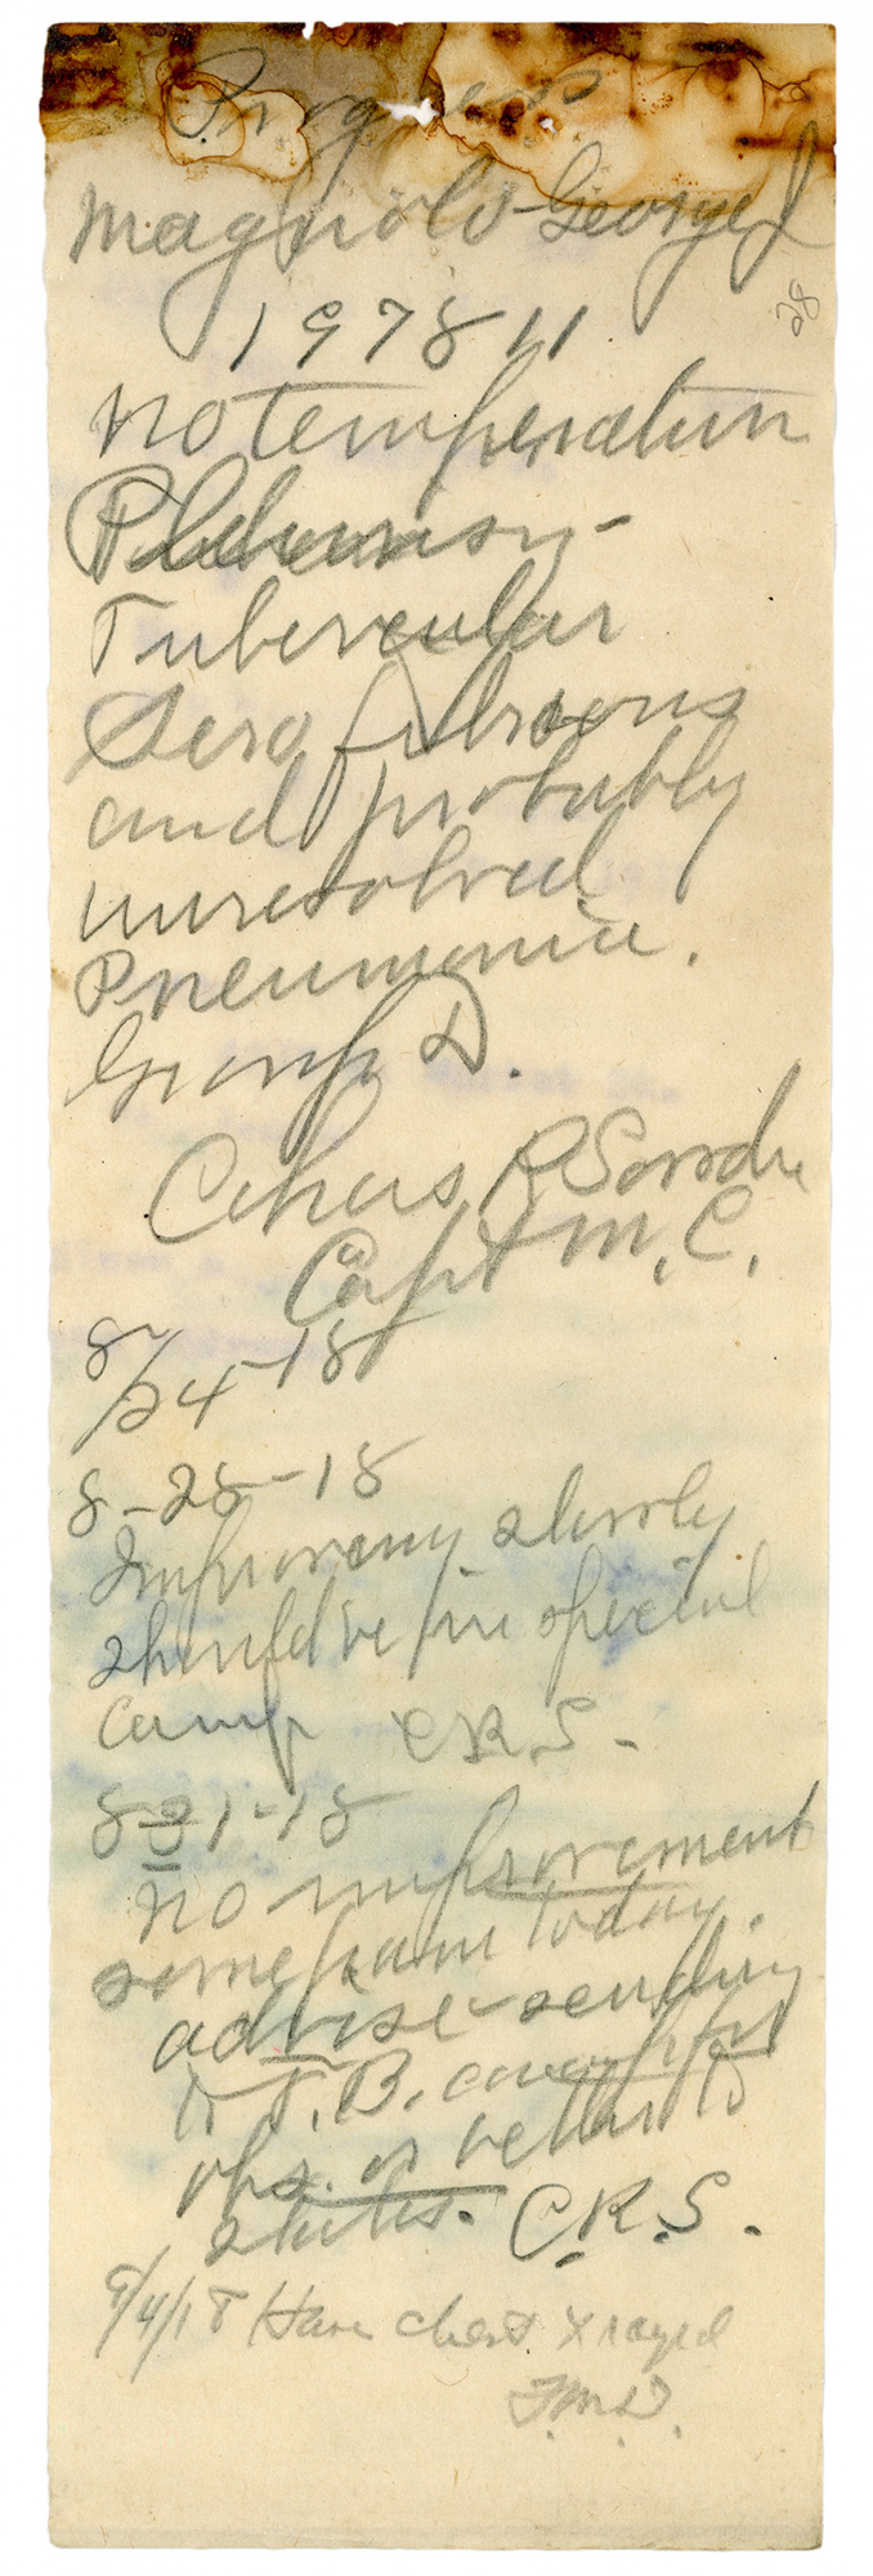 Progress
Magnolo George J
28
197811
No temperature
Pleurisy-
Tubercular
Sero fibrous
and probably
unresolved
Pneumonia.
Group D.
Chas R
Capt M.C.
8/24-18
8-28-18
Improving slowly
should be in special
Camp CRS-
8-31-18
No improvement
some pain today.
advise sending
to T.B. camp for
obs. or better to
states. C.R.S.
9/4/18 Have chest Xrayed
F.M.D.